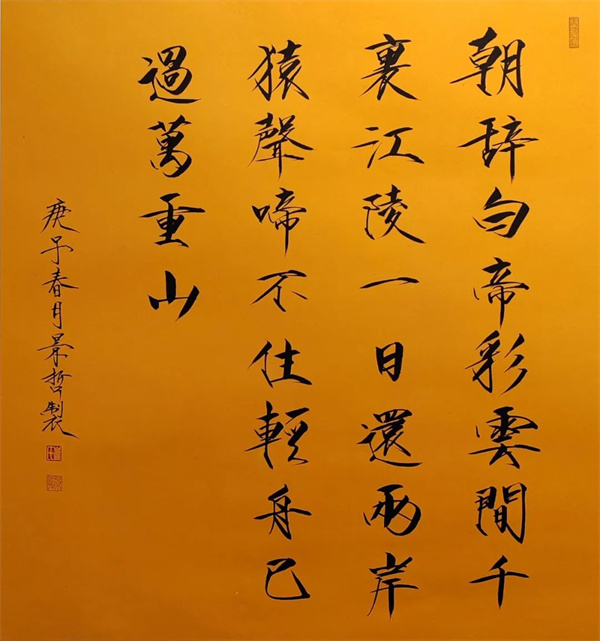 朝辞白帝彩雲間千
裏江陵一日還兩岸
猿聲啼不住輕舟已
過萬重山
庚子春月哲製